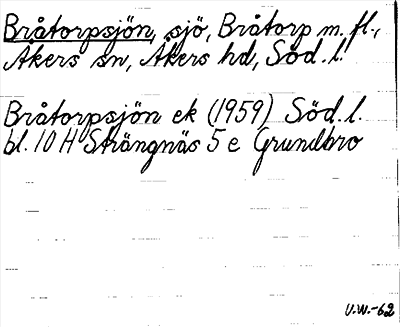 Bråtorpsjön, sjö, Bråtorp m. fl.,
Åkers sn, Åkers hd, Söd. l.
Bråtorpsjön ek (1959) Söd. l.
bl. 10 H Strängnäs 5 e Grundbro
U.W.-62